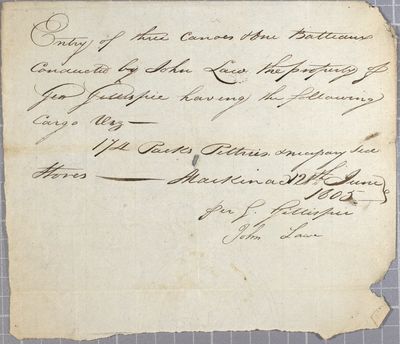 Entry of three Canoes & One Batteaux
Conducted by John Law the property of
Geo Gillespie having the following
Cargo Viz —
174 Packs Peltries necessary Sea
Stores — Mackinac 12th June
1805
per G. Gillespie
John Law